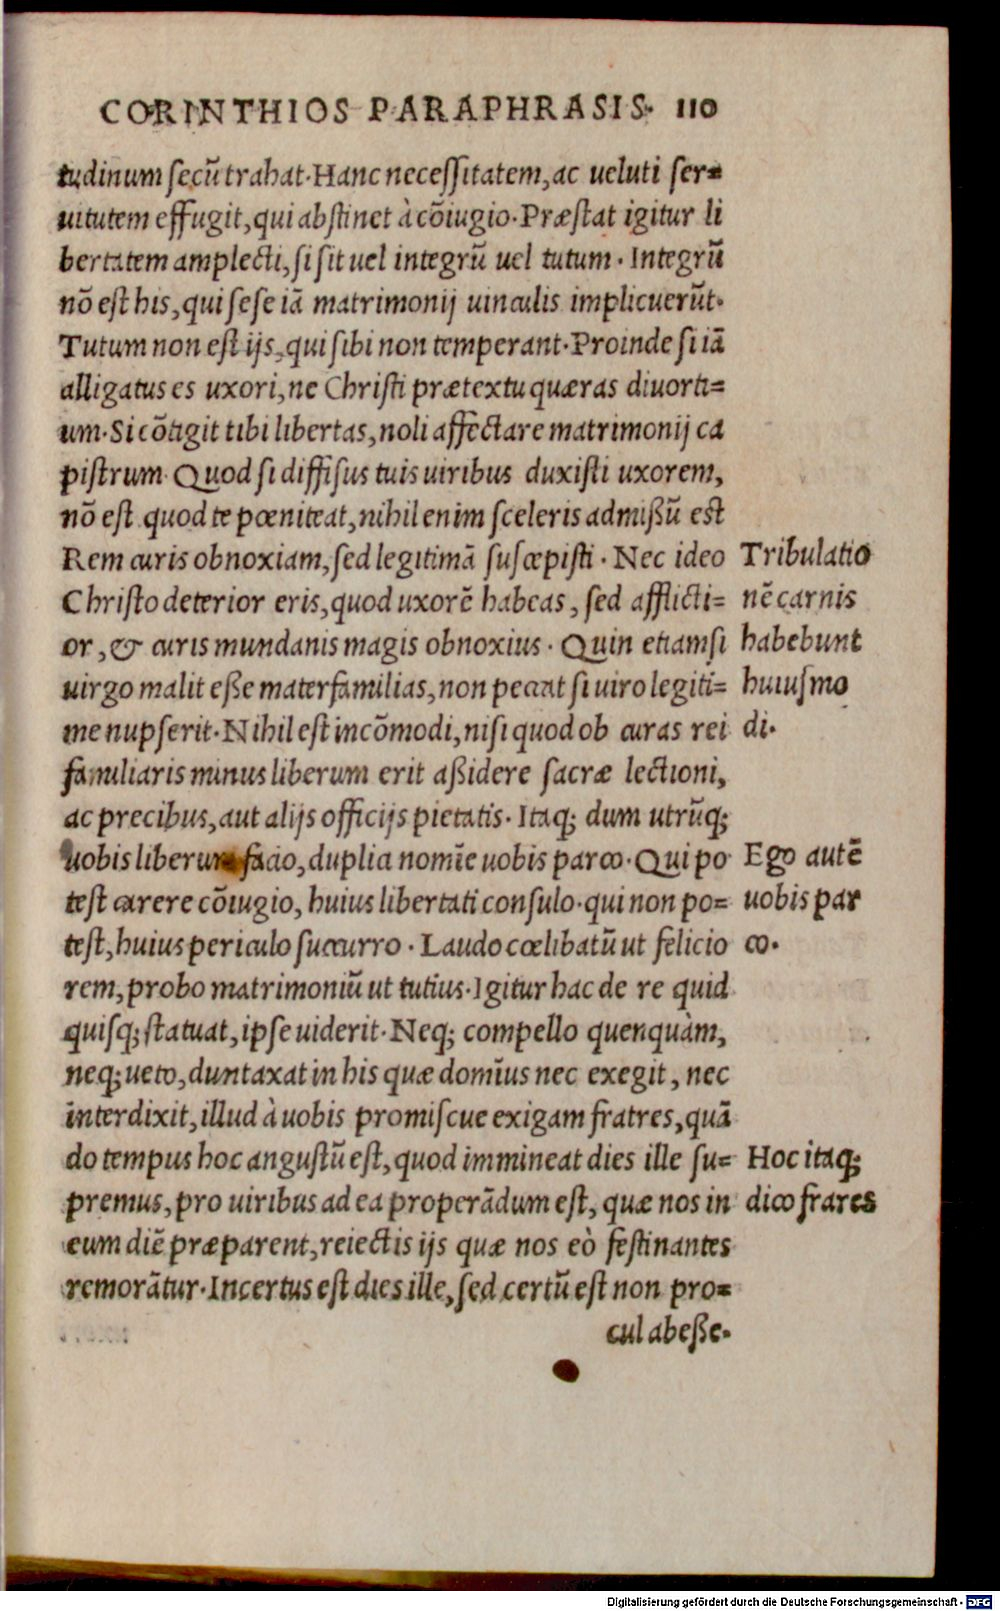 CORINTHIOS PARAPHRASIS. 110
tudinum secū trahat. Hanc necessitatem, ac ueluti ser=
uitutem effugit, qui abstinet à cōiugio. Præstat igitur li
bertatem amplecti, si sit uel integrū uel tutum. Integrū
nō est his, qui sese iā matrimonij uinculis implicuerūt.
Tutum non est ijs, qui sibi non temperant. Proinde si iā
alligatus es uxori, ne Christi prætextu quæras diuorti=
um. Si cōtigit tibi libertas, noli affectare matrimonij ca
pistrum. Quod si diffisus tuis uiribus duxisti uxorem,
nō est quod te pœniteat, nihil enim sceleris admißū est
Rem curis obnoxiam, sed legitimā suscepisti. Nec ideo
Christo deterior eris, quod uxorē habeas, sed afflicti=
or, & curis mundanis magis obnoxius. Quin etiamsi
uirgo malit eße materfamilias, non peccat si uiro legiti=
me nupserit. Nihil est incōmodi, nisi quod ob curas rei
familiaris minus liberum erit aßidere sacræ lectioni,
ac precibus, aut alijs officijs pietatis. Itaq; dum utrūq;
uobis liberum facio, duplici nomīe uobis parco. Qui po
test carere cōiugio, huius libertati consulo. qui non po=
test, huius periculo succurro. Laudo cœlibatū ut felicio
rem, probo matrimoniū ut tutius. Igitur hac de re quid
quisq; statuat, ipse uiderit. Neq; compello quenquàm,
neq; ueto, duntaxat in his quæ domīus nec exegit, nec
interdixit, illud à uobis promiscue exigam fratres, quā
do tempus hoc angustū est, quod immineat dies ille su=
premus, pro uiribus ad ea properādum est, quæ nos in
eum diē præparent, reiectis ijs quæ nos eò festinantes
remorātur. Incertus est dies ille, sed certū est non pro=
cul abeße.
Tribulatio
nē carnis
habebunt
huiusmo
di.
Ego autē
uobis par
co.
Hoc itaq;
dico frares
Digitalisierung gefördert durch die Deutsche Forschungsgemeinschaft - DFG